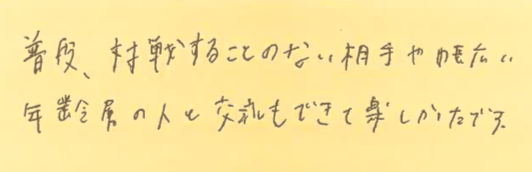 普段、対戦することのない相手や幅広い
年齢層の人と交流もできて楽しかたです。